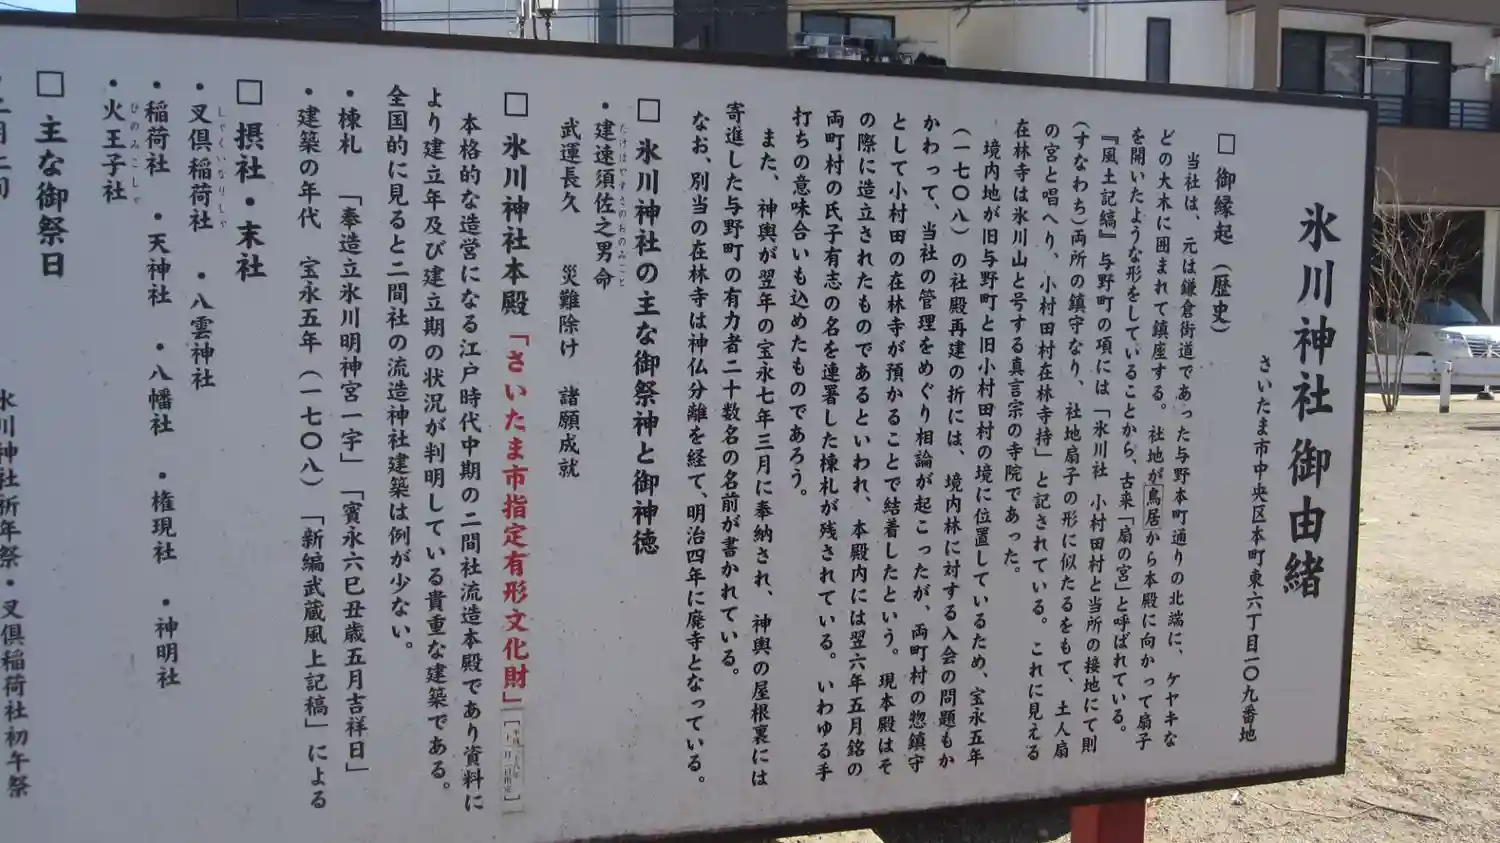 氷川神社 御由緒
さいたま市中央区本町東六丁目一〇九番地
□ 御縁起（歴史）
当社は、元は鎌倉街道であった与野本町通りの北端に、ケヤキな
どの大木に囲まれて鎮座する。社地が鳥居から本殿に向かって扇子
を開いたような形をしていることから、古来「扇の宮」と呼ばれている。
『風土記縞』与野町の項には「氷川社 小村田村と当所の接地にて則
（すなわち）両所の鎮守なり、 社地扇子の形に似たるをもて、土人扇
の宮と唱へり、小村田村在林寺持」と記されている。これに見える
在林寺は氷川山と号する真言宗の寺院であった。
境内地が旧与野町と旧小村田村の境に位置しているため、宝永五年
（一七〇八）の社殿再建の折には、境内林に対する入会の問題もか
かわって、当社の管理をめぐり相論が起こったが、両町村の惣鎮守
として小村田の在林寺が預かることで結着したという。現本殿はそ
の際に造立されたものであるといわれ、本殿内には翌六年五月銘の
両町村の氏子有志の名を連署した棟札が残されている。いわゆる手
打ちの意味合いも込めたものであろう。
また、神輿が翌年の宝永七年三月に奉納され、神輿の屋根裏には
寄進した与野町の有力者二十数名の名前が書かれている。
なお、別当の在林寺は神仏分離を経て、明治四年に廃寺となっている。
□ 氷川神社の主な御祭神と御神徳
・建速須佐之男命
たけはやすさのおのみこと
武運長久 災難除け 諸願成就
□ 氷川神社本殿「さいたま市指定有形文化財」
本格的な造営になる江戸時代中期の二間社流造本殿であり資料に
より建立年及び建立期の状況が判明している貴重な建築である。
全国的に見ると二間社の流造神社建築は例が少ない。
・棟札 「奉造立氷川明神宮一宇」「賓永六巳丑歳五月吉祥日」
・建築の年代 宝永五年（一七〇八）「新編武蔵風上記稿」による
□ 摂社・末社
・叉倶稲荷社 ・八雲神社
しゃくいなりしゃ
・稲荷社 ・天神社 ・八幡社 ・権現社 ・神明社
・火王子社
ひのみこしゃ
□ 主な御祭日
氷川神社祈年祭・叉倶稲荷社初午祭